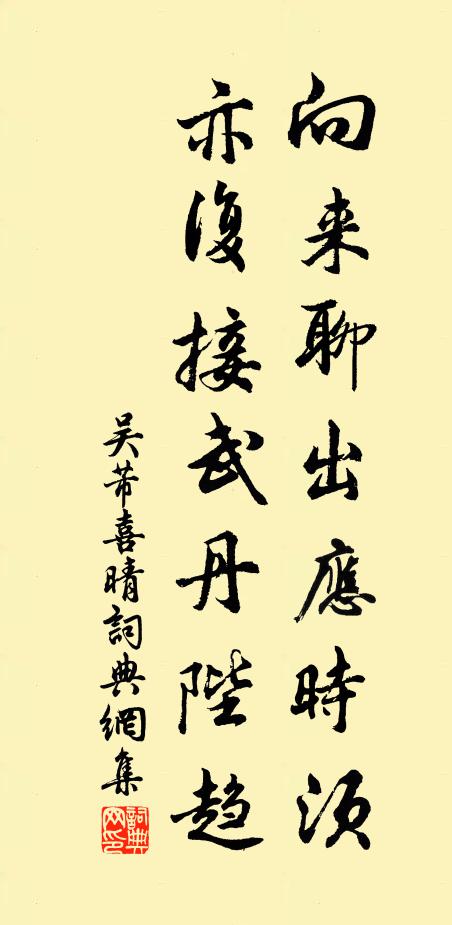 向来聊出應時須
亦復接武丹陛趋
吴芾喜晴詞典網集
詞典網印